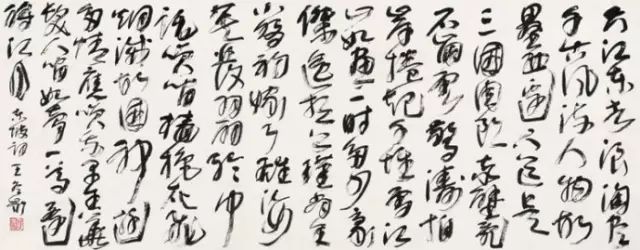 大江东去浪淘尽
千古风流人物故
垒西边人道是
三國周郎赤壁乱
石崩雲驚涛拍
岸捲起千堆雪江
山如画一时多少豪
傑遥想公瑾当年
小喬初嫁了雄姿
英发羽扇纶巾
谈笑间樯橹灰飞
烟灭故國神遊
多情应笑我早生華
发人间如梦一尊还
酹江月 东坡词 王冬龄